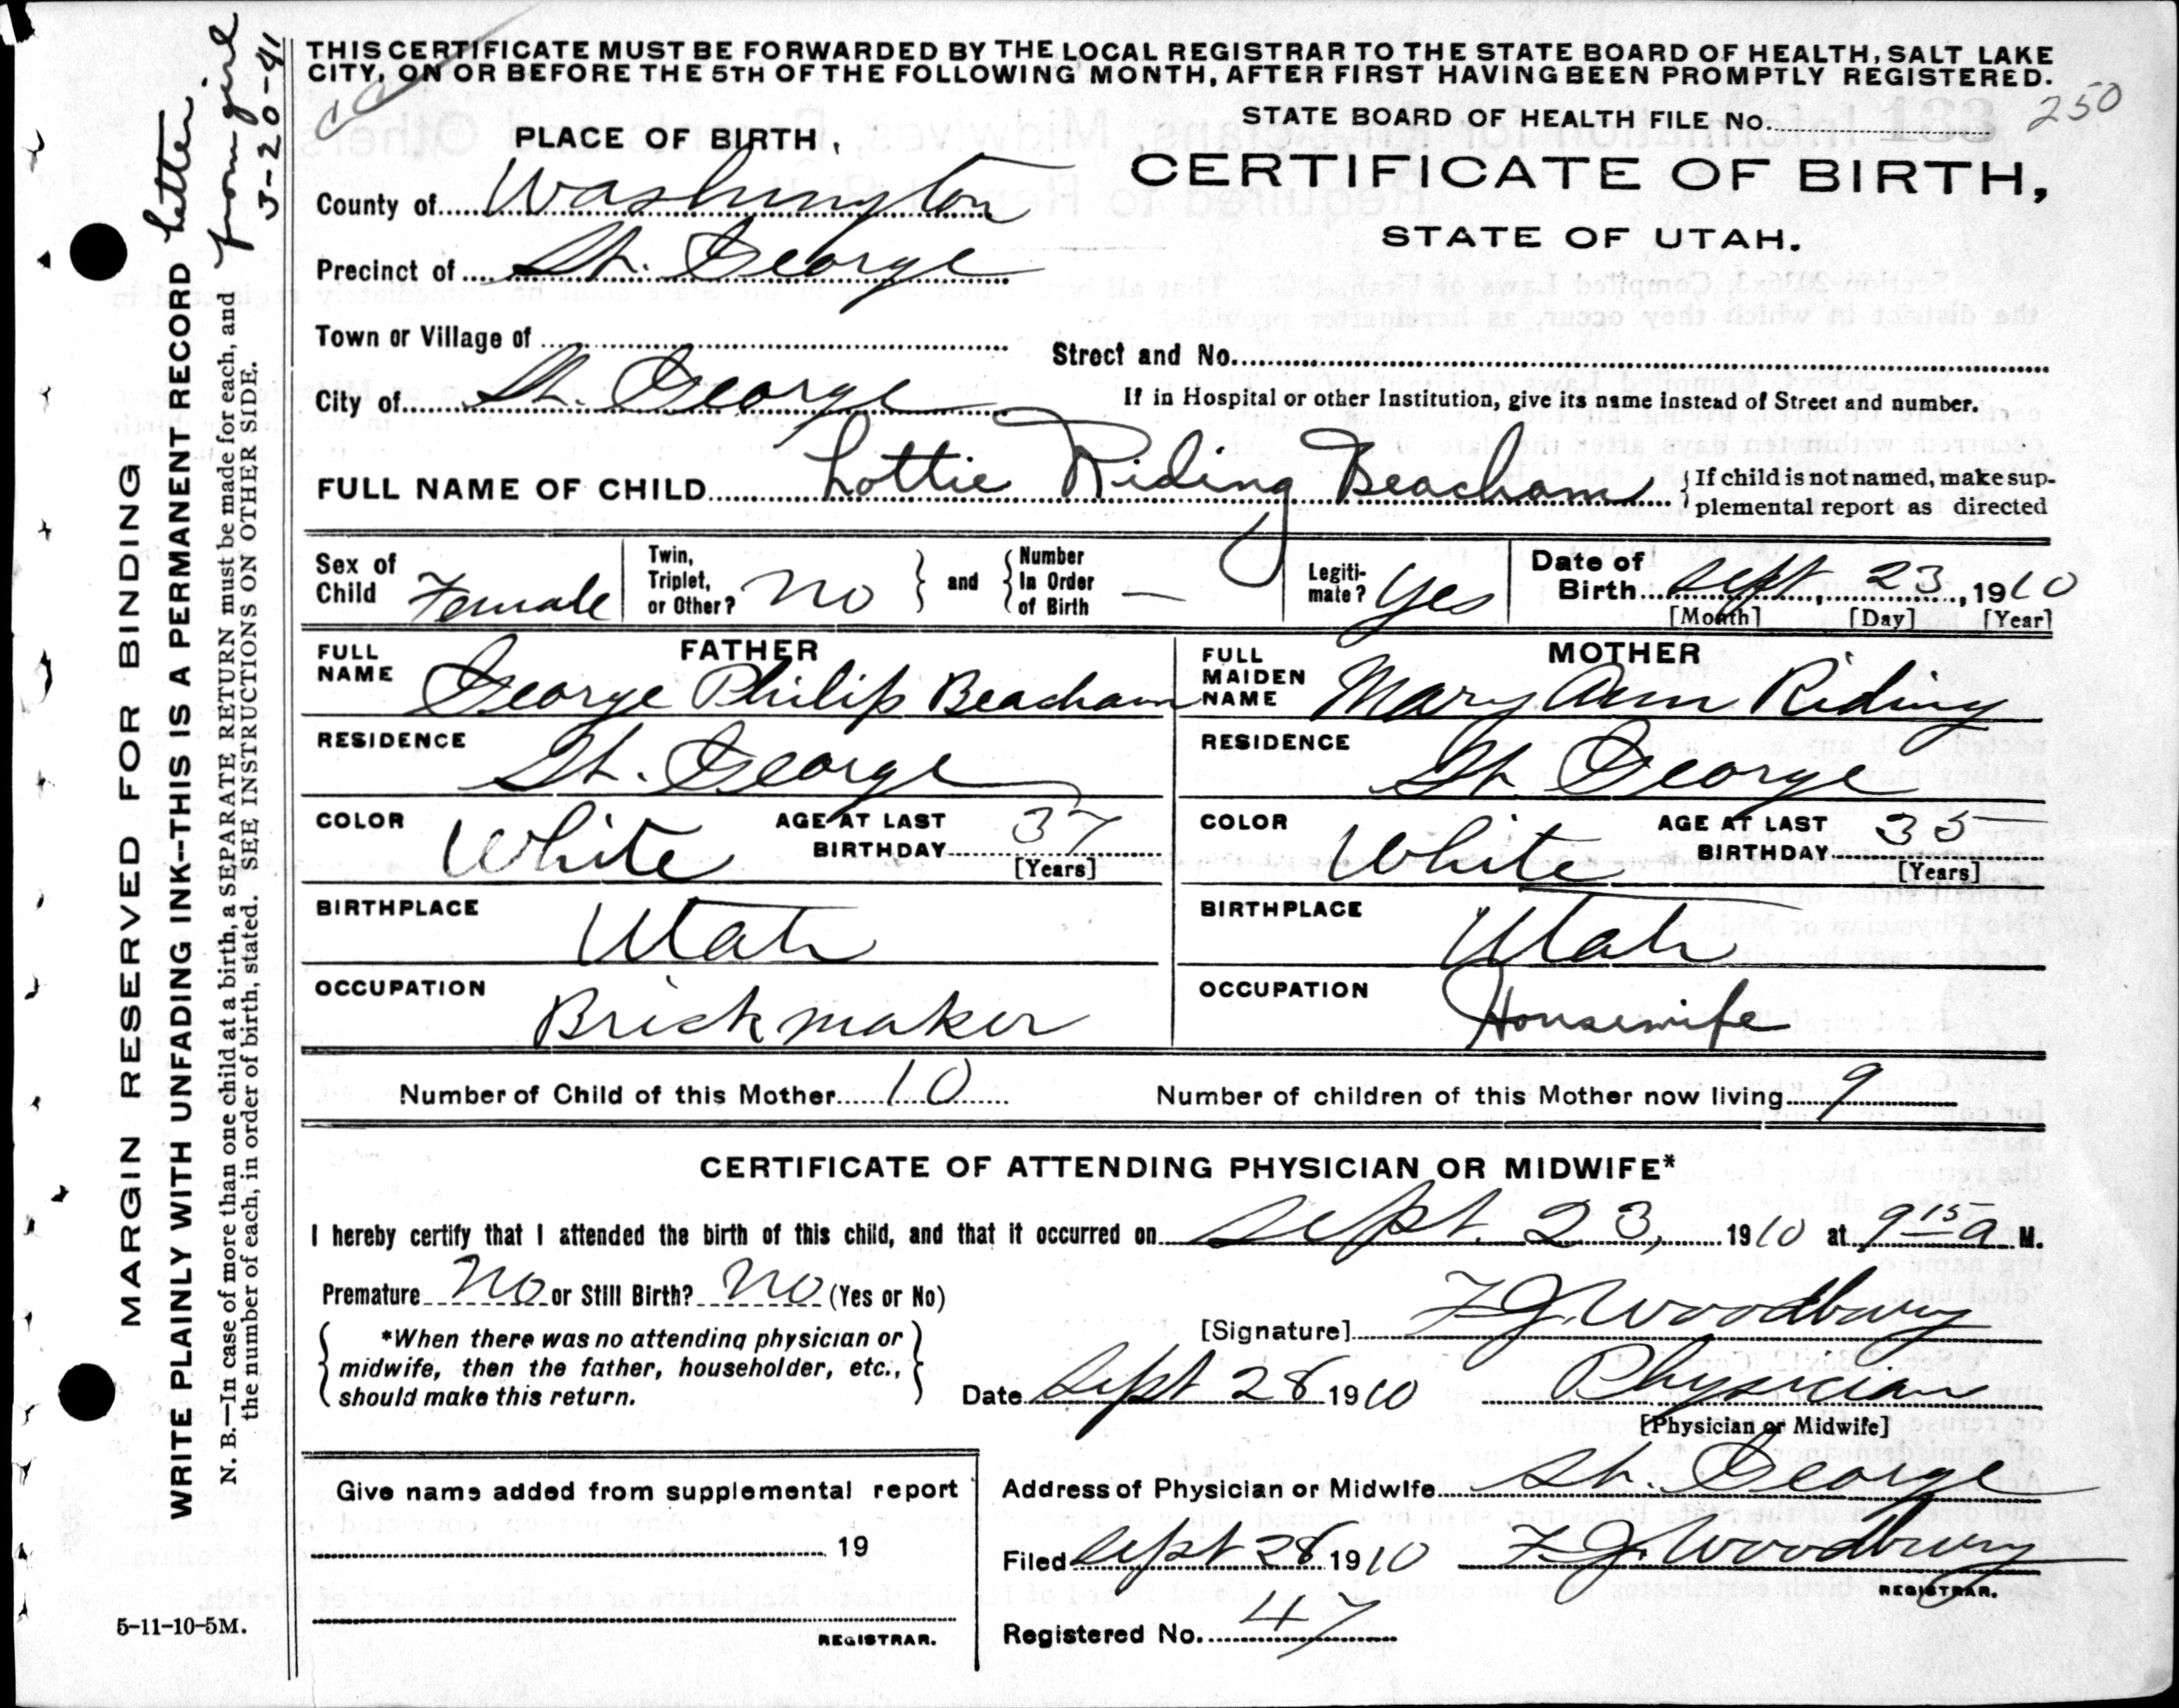 THIS CERTIFICATE MUST BE FORWARDED BY THE LOCAL REGISTRAR TO THE STATE BOARD OF HEALTH, SALT LAKE
CITY, ON OR BEFORE THE 5TH OF THE FOLLOWING MONTH, AFTER FIRST HAVING BEEN PROMPTLY REGISTERED.
STATE BOARD OF HEALTH FILE No. 133 250
PLACE OF BIRTH,
CERTIFICATE OF BIRTH,
STATE OF UTAH.
County of Washington
Precinct of St. George
Town or Village of
Street and No.
City of St. George
If in Hospital or other Institution, give its name instead of Street and number.
FULL NAME OF CHILD Lottie Riding Beacham { If child is not named, make sup-
plemental report as directed
Sex of Child Female
Twin, Triplet, or Other? No } and { Number In Order of Birth —
Legiti-mate? Yes
Date of Birth Sept, 23, 1910
[Month] [Day] [Year]
FATHER
FULL NAME George Philip Beacham
RESIDENCE St. George
COLOR White AGE AT LAST BIRTHDAY 37
[Years]
BIRTHPLACE Utah
OCCUPATION Brickmaker
MOTHER
FULL MAIDEN NAME Mary Ann Riding
RESIDENCE St George
COLOR White AGE AT LAST BIRTHDAY 35
[Years]
BIRTHPLACE Utah
OCCUPATION Housewife
Number of Child of this Mother 10 Number of children of this Mother now living 9
CERTIFICATE OF ATTENDING PHYSICIAN OR MIDWIFE*
I hereby certify that I attended the birth of this child, and that it occurred on Sept. 23, 1910 at 9 15 a M.
Premature No or Still Birth? No (Yes or No)
{ *When there was no attending physician or
midwife, then the father, householder, etc.,
should make this return. }
[Signature] F. J. Woodbury
Date Sept 28 1910 Physician
[Physician or Midwife]
Give name added from supplemental report
19
REGISTRAR.
Address of Physician or Midwife St. George
Filed Sept 28 1910 F. J. Woodbury
REGISTRAR.
Registered No. 47
5-11-10-5M.
MARGIN RESERVED FOR BINDING
WRITE PLAINLY WITH UNFADING INK--THIS IS A PERMANENT RECORD
N. B.—In case of more than one child at a birth, a SEPARATE RETURN must be made for each, and
the number of each, in order of birth, stated. SEE INSTRUCTIONS ON OTHER SIDE.
Letter
from girl
3-20-41